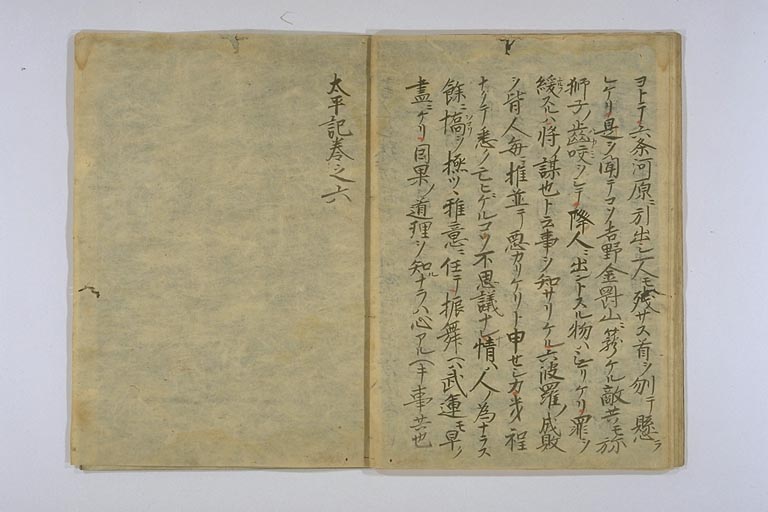 ヨトテ六条河原ニ引出シ一人モ残サス首ヲ刎テ懸ラ
レケリ是ヲ聞テコソ吉野金剛山ニ籠ケル敵共モ弥
獅子ノ歯咬ヲシテ降人ニ出ントスル物ハ无リケリ罪ヲ
緩スルハ将ノ謀也ト云事ヲ知サリケル六波羅ノ成敗
ヲ皆人毎ニ推並テ悪カリケリト申セシカ幾程
ナクテ悉ク亡ヒケルコソ不思議ナレ情ハ人ノ為ナラス
餘ニ憍ヲ極ツヽ雅意ニ任テ振舞ヘハ武運モ早ク
盡ニケリ因果ノ道理ヲ知ルナラハ心アルヘキ事共也
太平記巻之六